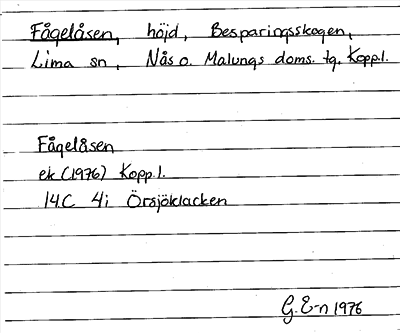 Fågelåsen, höjd, Besparingsskogen,
Lima sn, Nås o. Malungs doms. tg, Kopp.l.
Fågelåsen
ek (1976) Kopp.l.
14C 4i Örsjöklacken
G. E-n 1976